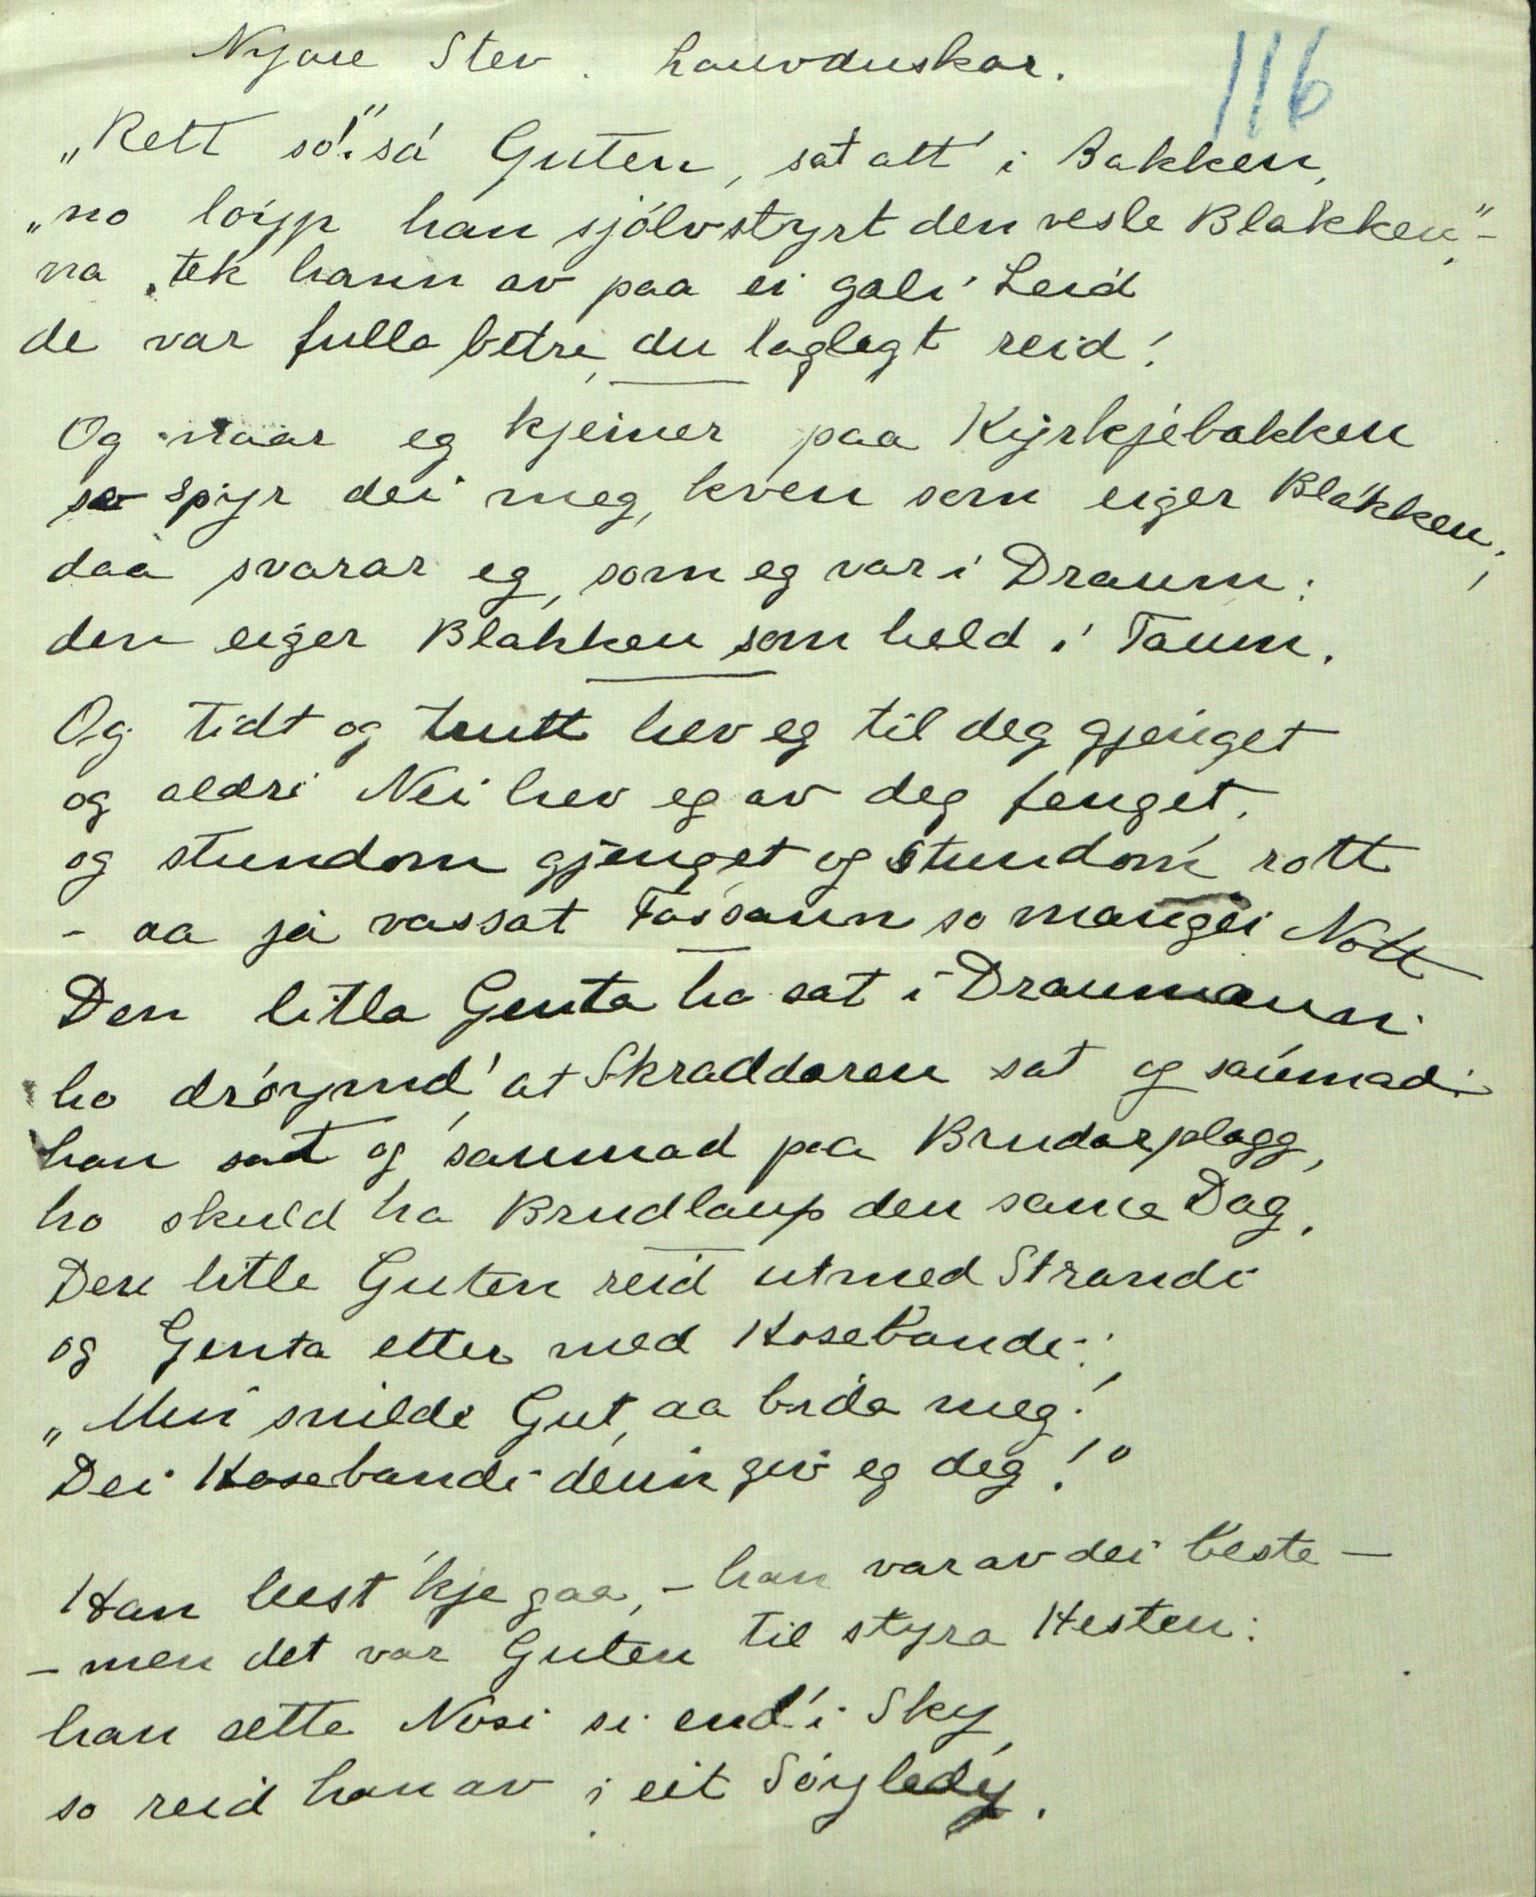 Nyare Stev. Lauvduskar.
116
„Rett só!" sá Guten, sat att i Bakken,
„no löyp han sjölvstyrt den vesle Blakken," –
na tek hann av paa ei gali Leid
de var fulla betre, du laglegt reid!
Og naar eg kjemer paa Kyrkjebakken
so spyr dei meg, kven som eiger Blakken;
daa svarar eg, som eg var i Draum:
den eiger Blakken som held i Taum.
Og tidt og trutt hev eg til deg gjenget
og aldri Nei hev eg av deg fenget,
og stundom gjenget og stundom rott
– aa ja vassat Fossann so mangei Nott
Den litla Genta ho sat i Draumann
ho dröymd' at Skraddaren sat og saumad
han sat og saumad paa Brudarplagg,
ho skuld ha Brudlaup den same Dag.
Den litle Guten reid utmed Strandi
og Genta etter med Hosebandi;
„Min snilde Gut, aa bida meg!
Dei Hosebandi denn gev eg deg!"
Han leest 'kje gaa, – han var av dei beste –
– men det var Guten til styra Hesten:
han sette Nosi si end' i Sky,
so reid han av i eit Söyledy.